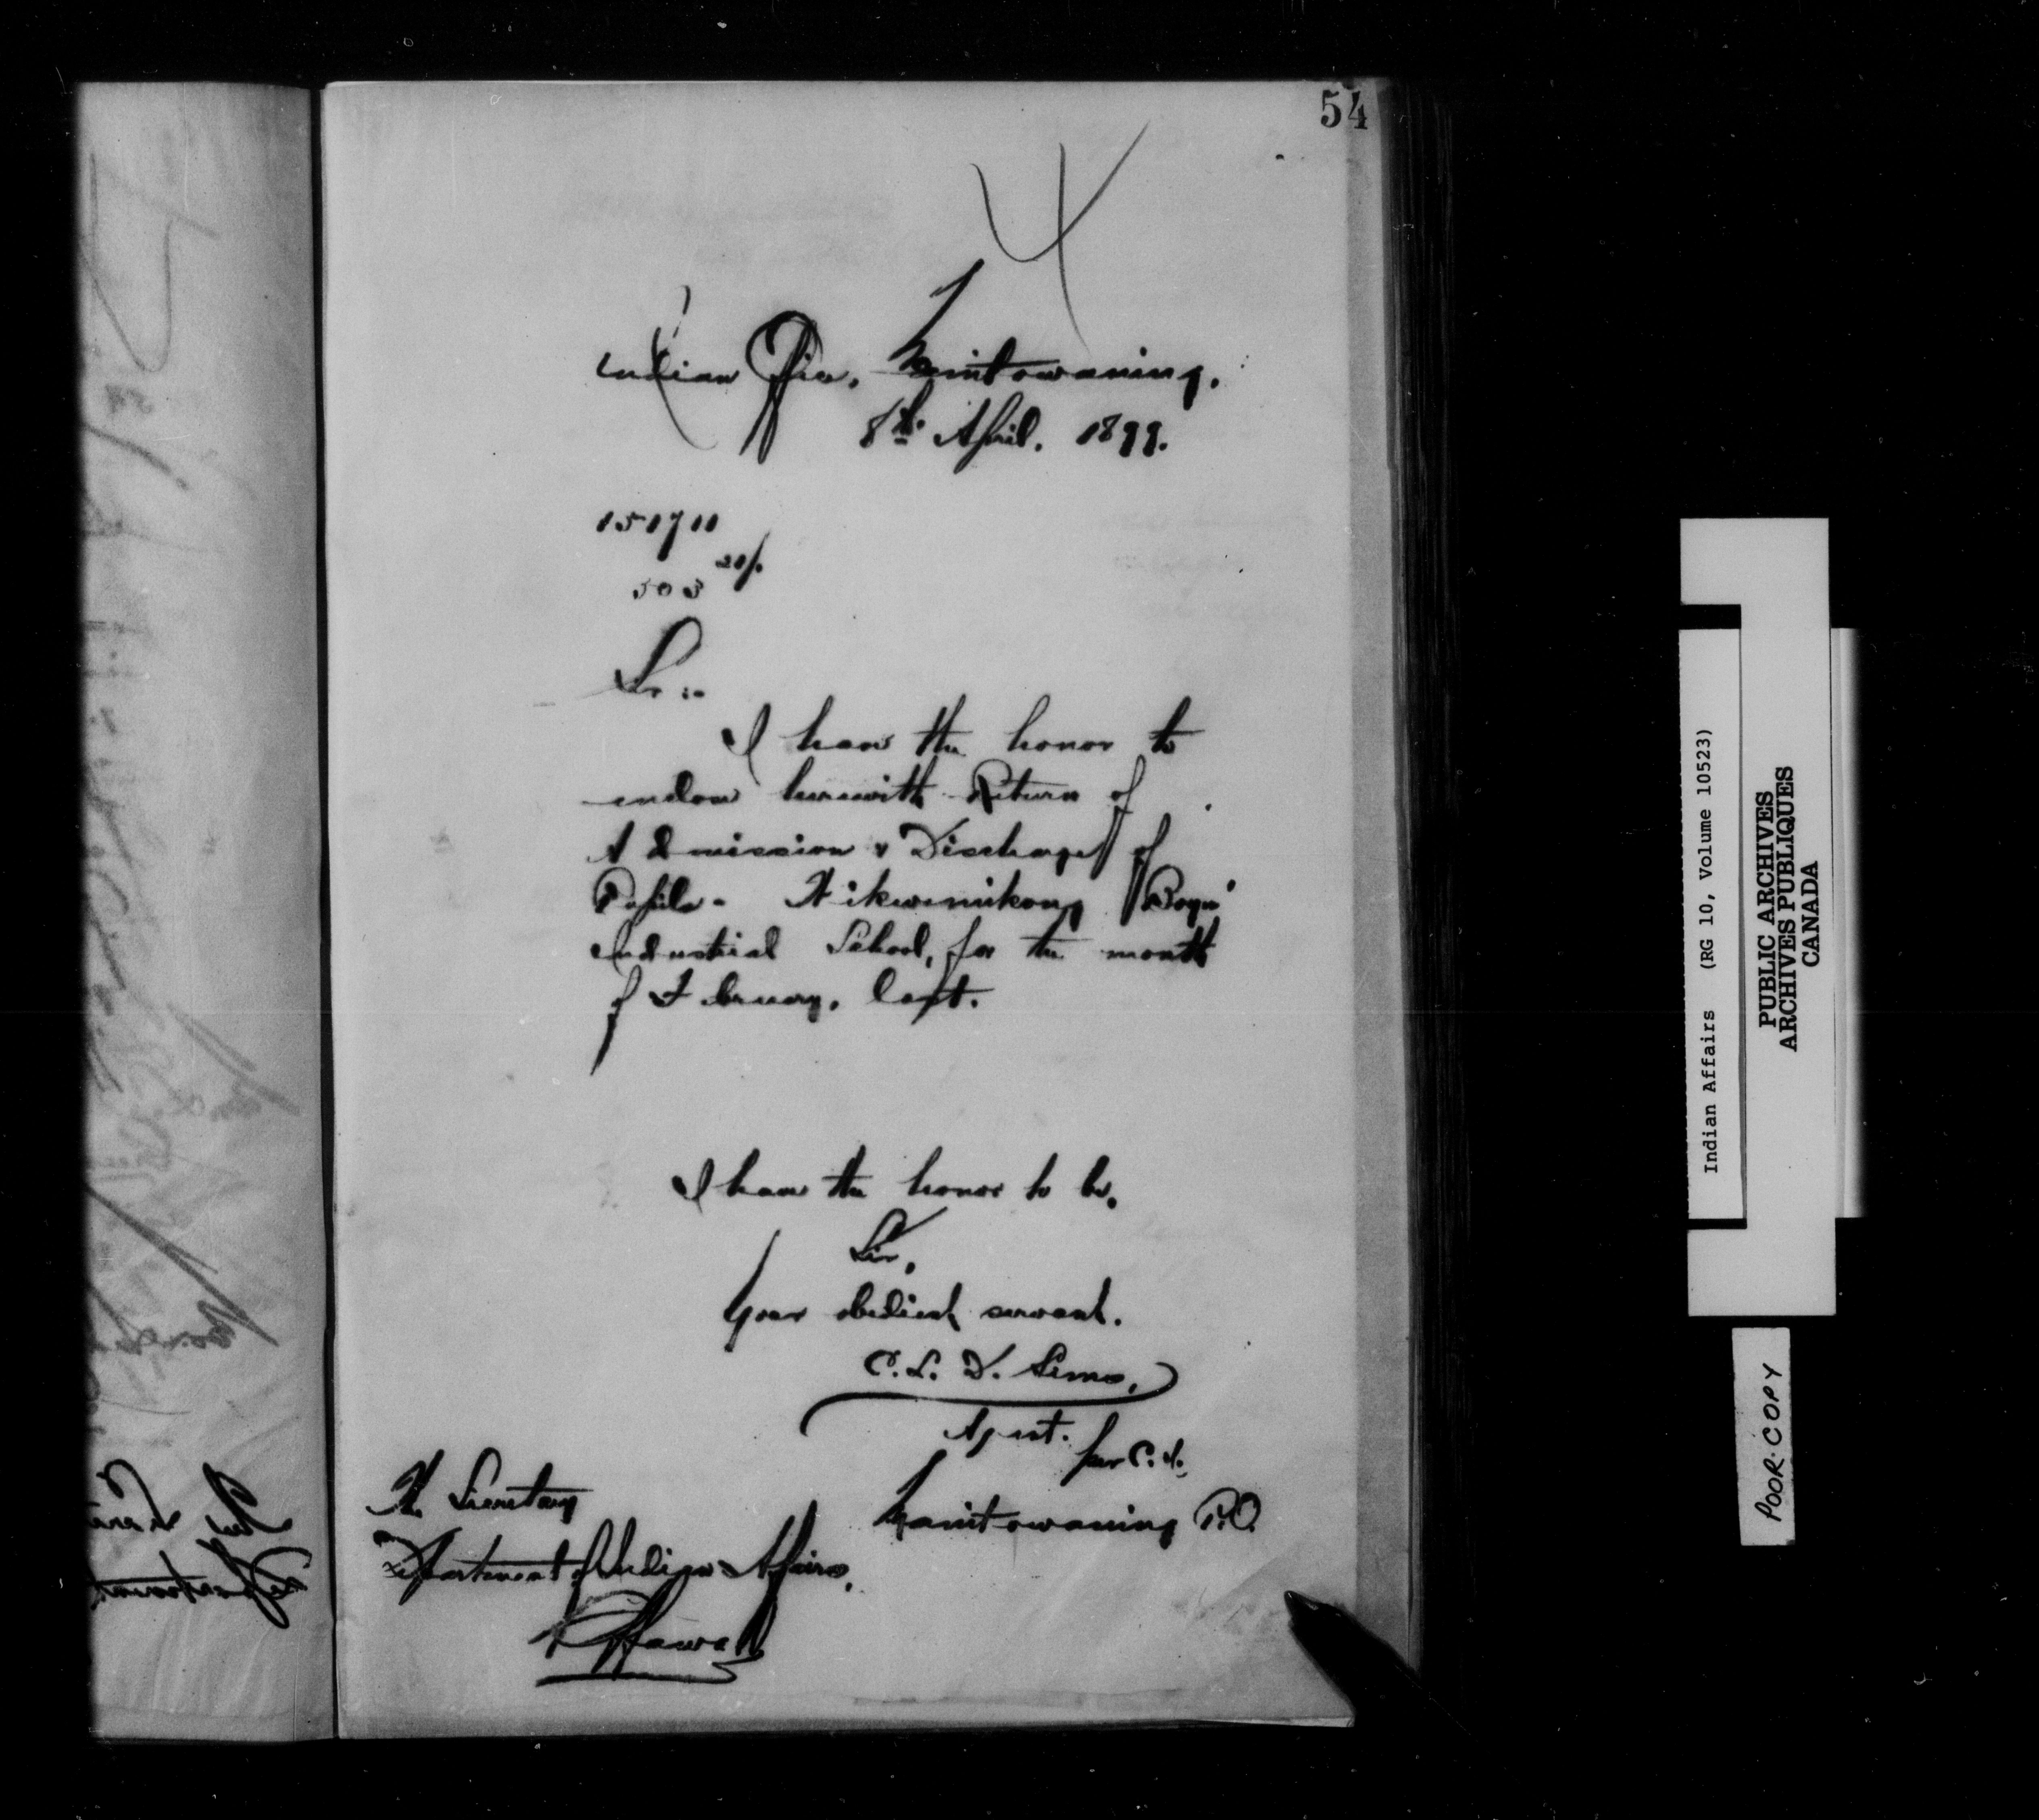 54
4
Indian Office, Manitowaning,
8th April, 1899.
151711
503
Sir:-
I have the honor to
enclose herewith Return of
Admission & Discharge of
Pupils - Wikwemikong Boys'
Industrial School, for the month
of February, last.
I have the honor to be,
Sir,
Your obedient servant.
C. L. D. Sims,
Agent.
per C.
The Secretary
Manitowaning P.O.
Department of Indian Affairs,
Ottawa
Indian Affairs (RG 10, Volume 10523)
PUBLIC ARCHIVES
ARCHIVES PUBLIQUES
CANADA
POOR COPY